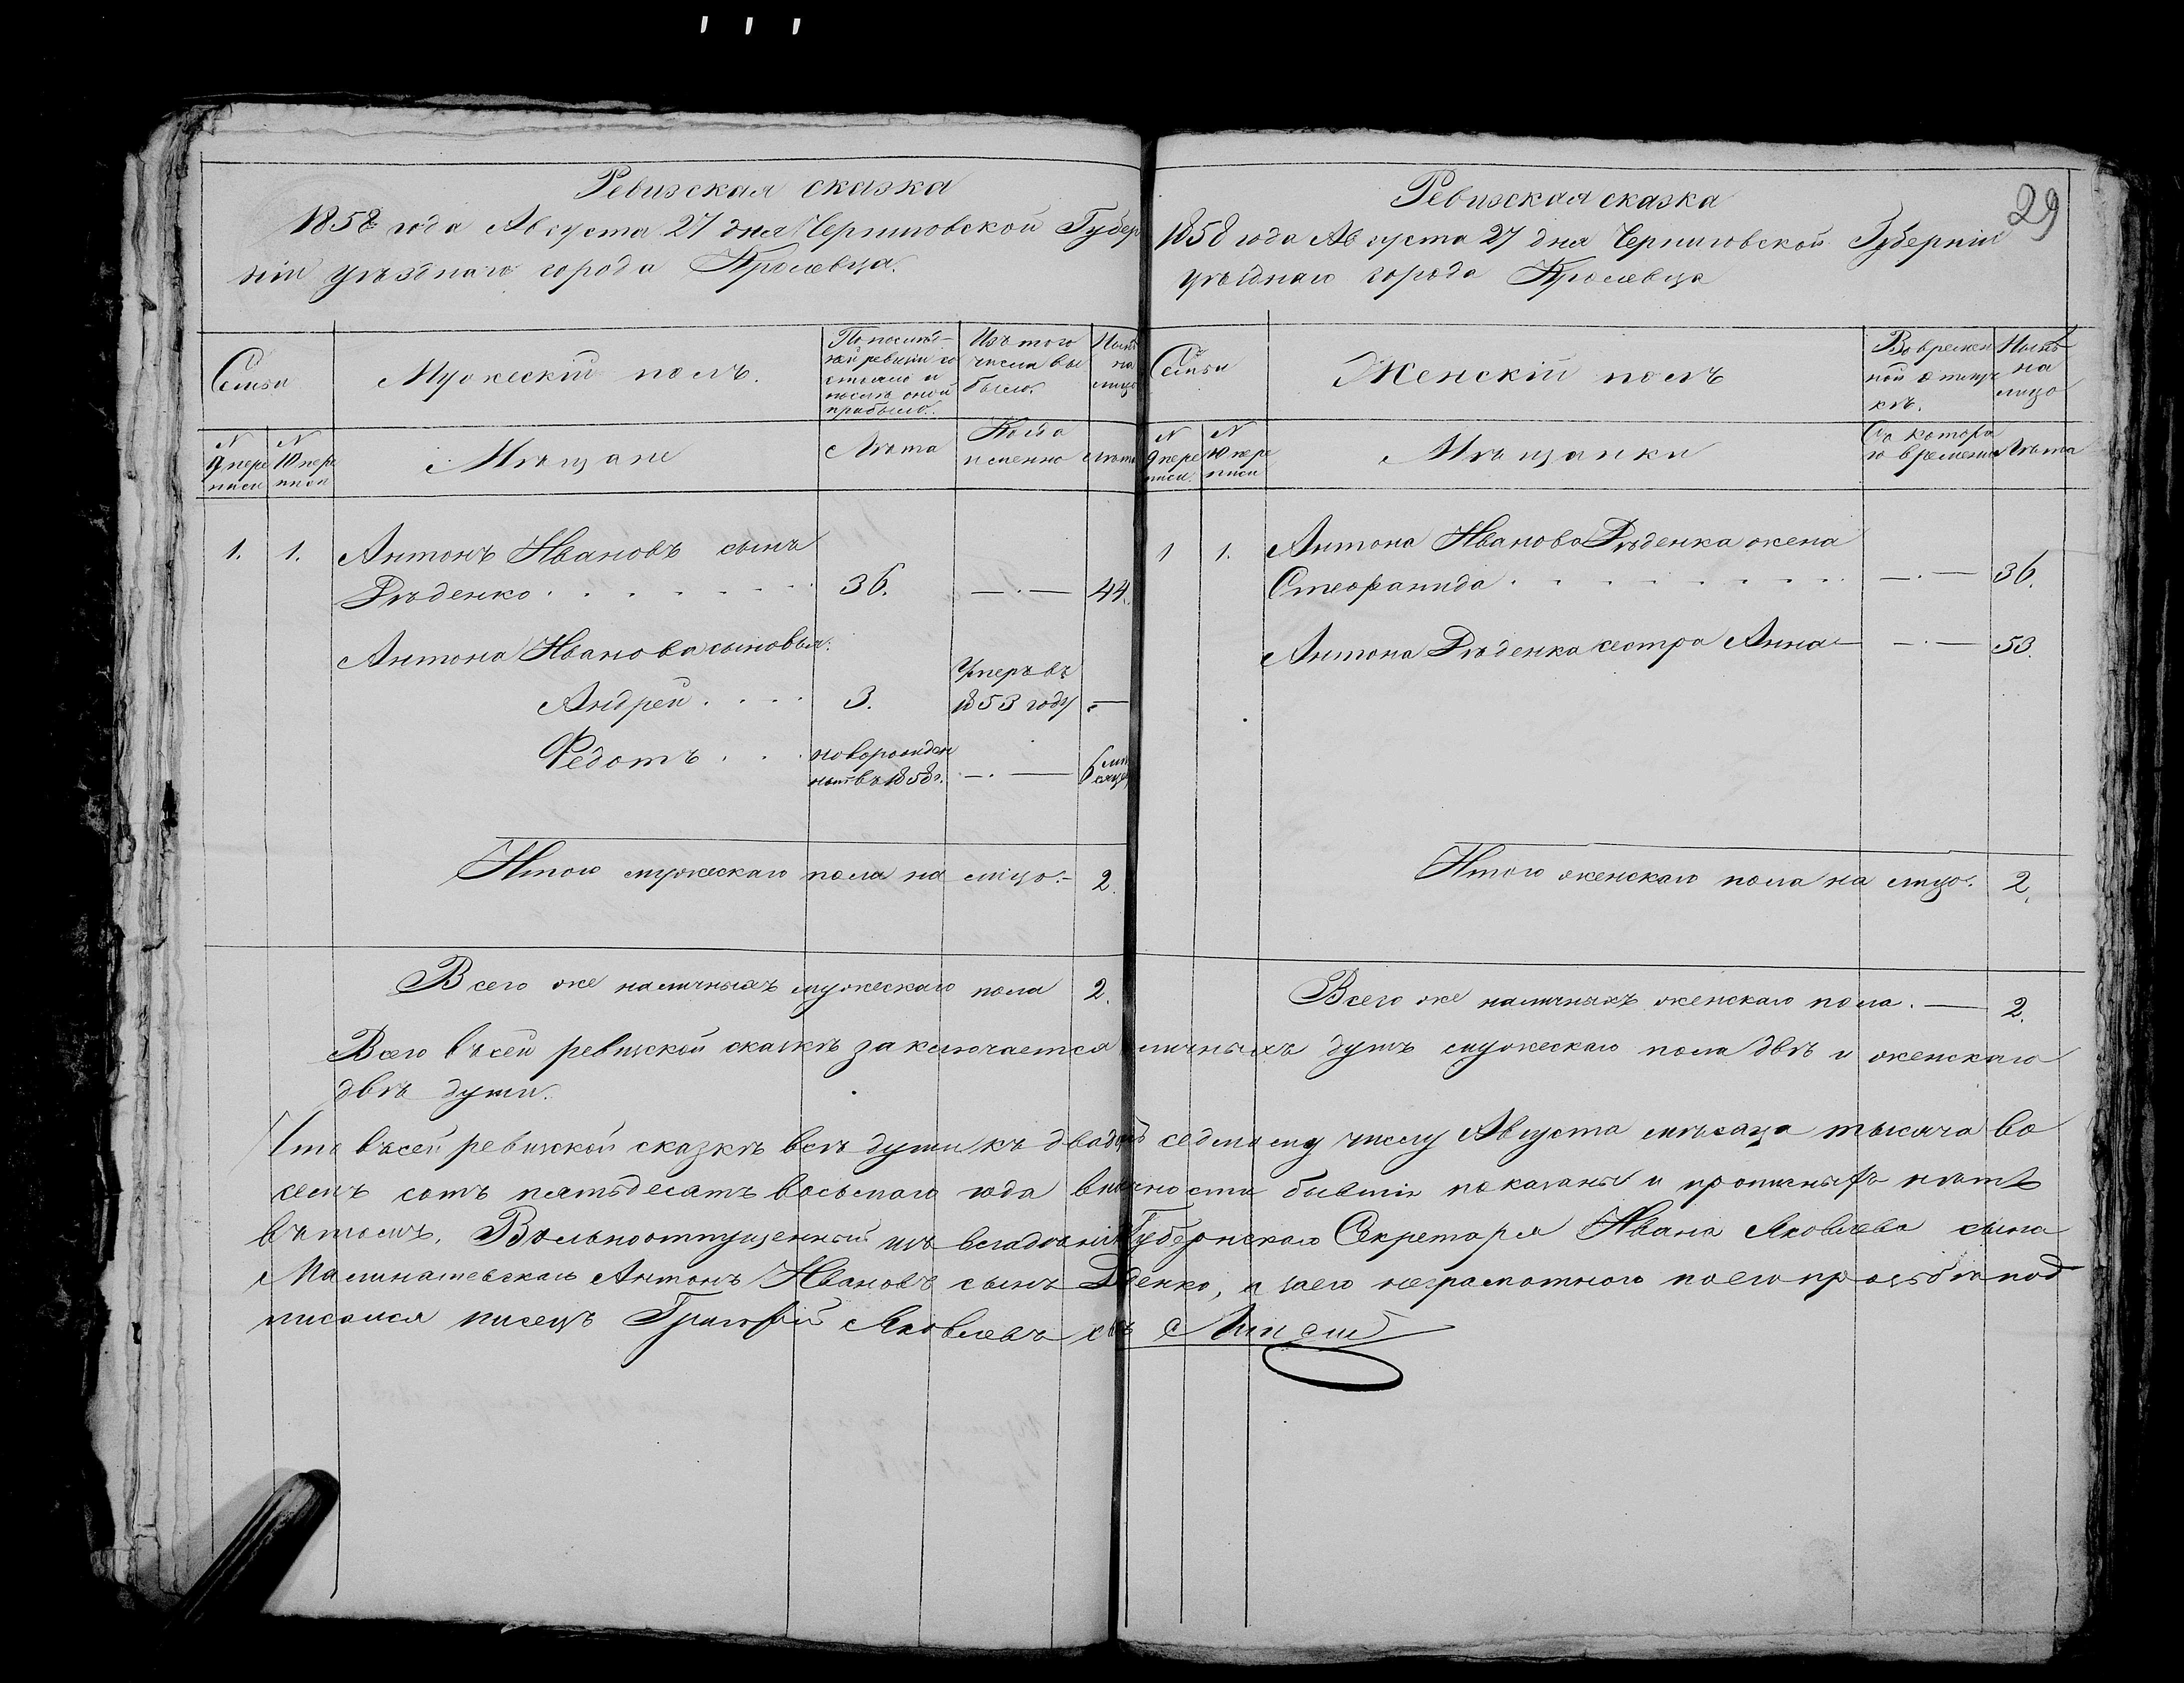 Ревизская сказка
1858 года Августа 27 дня Черниговской Губер
ніи уѣзднаго города Кролевца.
Семьи
Мужескій полъ.
По послѣд-
ней ревизіи со
стояло и
послѣ оной
прибыло.
Изъ того
числа вы
было.
Нынѣ
на
лицо
N
9 пере
писи
N
10 пере
писи
Мѣщане
Лѣта
Когда
именно
Лѣта
1. 1. Антонъ Ивановъ сынъ
Рѣденко . . . . . . 36. — . — 44.
Антона Иванова сыновья:
Андрей . . . . 3. Умеръ въ
1853 году —
Федотъ . . . новорожден
ный въ 1858 г. — . — 6 мѣ
сяц
Итого мужескаго пола на лицо. — 2.
Всего же наличныхъ мужескаго пола 2.
29
Ревизская сказка
1858 года Августа 27 дня Черниговской Губерніи
уѣзднаго города Кролевца
Семьи
Женскій полъ
Во времен
ной отлуч
кѣ.
Нынѣ
на
лицо
N
9 пере
писи.
N
10 пере
писи
Мѣщанки
Съ котора
го времени
Лѣта
1 1. Антона Иванова Рѣденка жена
Стефанида . . . . . . . . — . — 36.
Антона Рѣденка сестра Анна — — . — 53.
Итого женскаго пола на лицо. 2.
Всего же наличныхъ женскаго пола. — 2.
Всего въ сей ревизской сказкѣ заключается личныхъ душъ мужескаго пола двѣ и женскаго
двѣ души.
Что въ сей ревизской сказкѣ всѣ души къ двадцать седмому числу Августа мѣсяца тысяча во
семъ сотъ пятьдесятъ восьмаго года въ личности бывшіе показаны и прописныхъ нѣтъ
въ томъ. Вольноотпущенный изъ владѣнія Губернскаго Секретаря Ивана Яковлева сына
Антонъ Ивановъ сынъ денко, а за его неграмотнаго по его прозьбѣ под
писался писецъ Григорій Яковлевъ